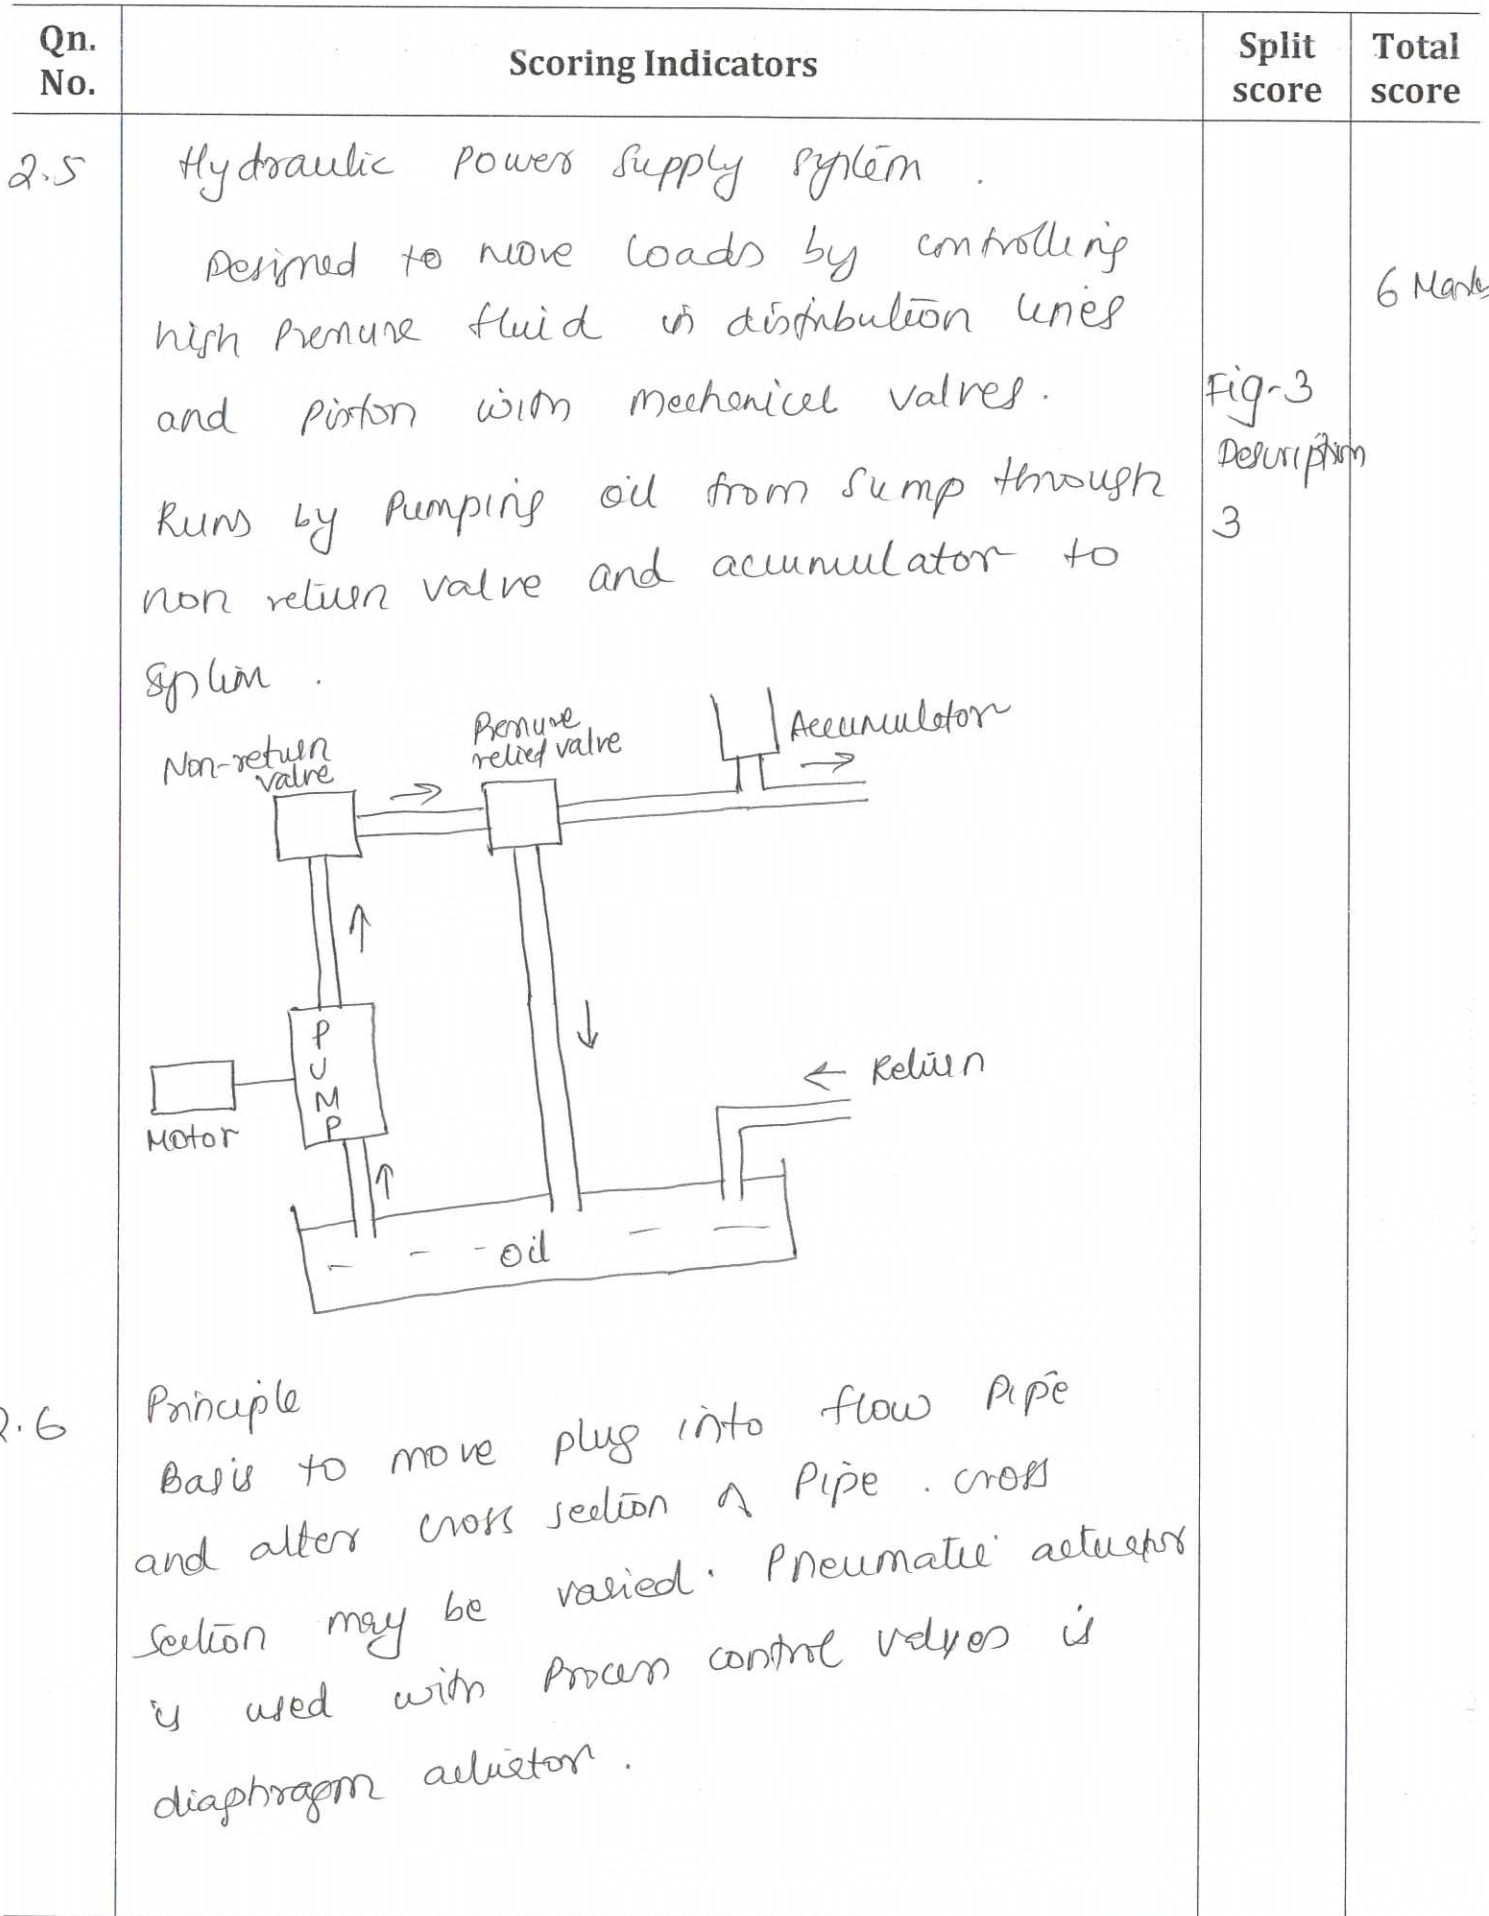 Qn. No.
Scoring Indicators
Split score
Total score
2.5
Hydraulic power supply system .
Designed to move loads by controlling
high pressure fluid in distribution lines
and piston with mechanical valves.
Runs by pumping oil from sump through
non return valve and accumulator to
system .
6 Marks
Fig-3
Description
3
Non-return
valve
Pressure
relief valve
Accumulator
PUMP
Motor
Return
Oil
2.6
Principle
Basis to move plug into flow pipe
and alter cross section of pipe . cross
section may be varied. Pneumatic actuator
is used with process control valves is
diaphragm actuator .